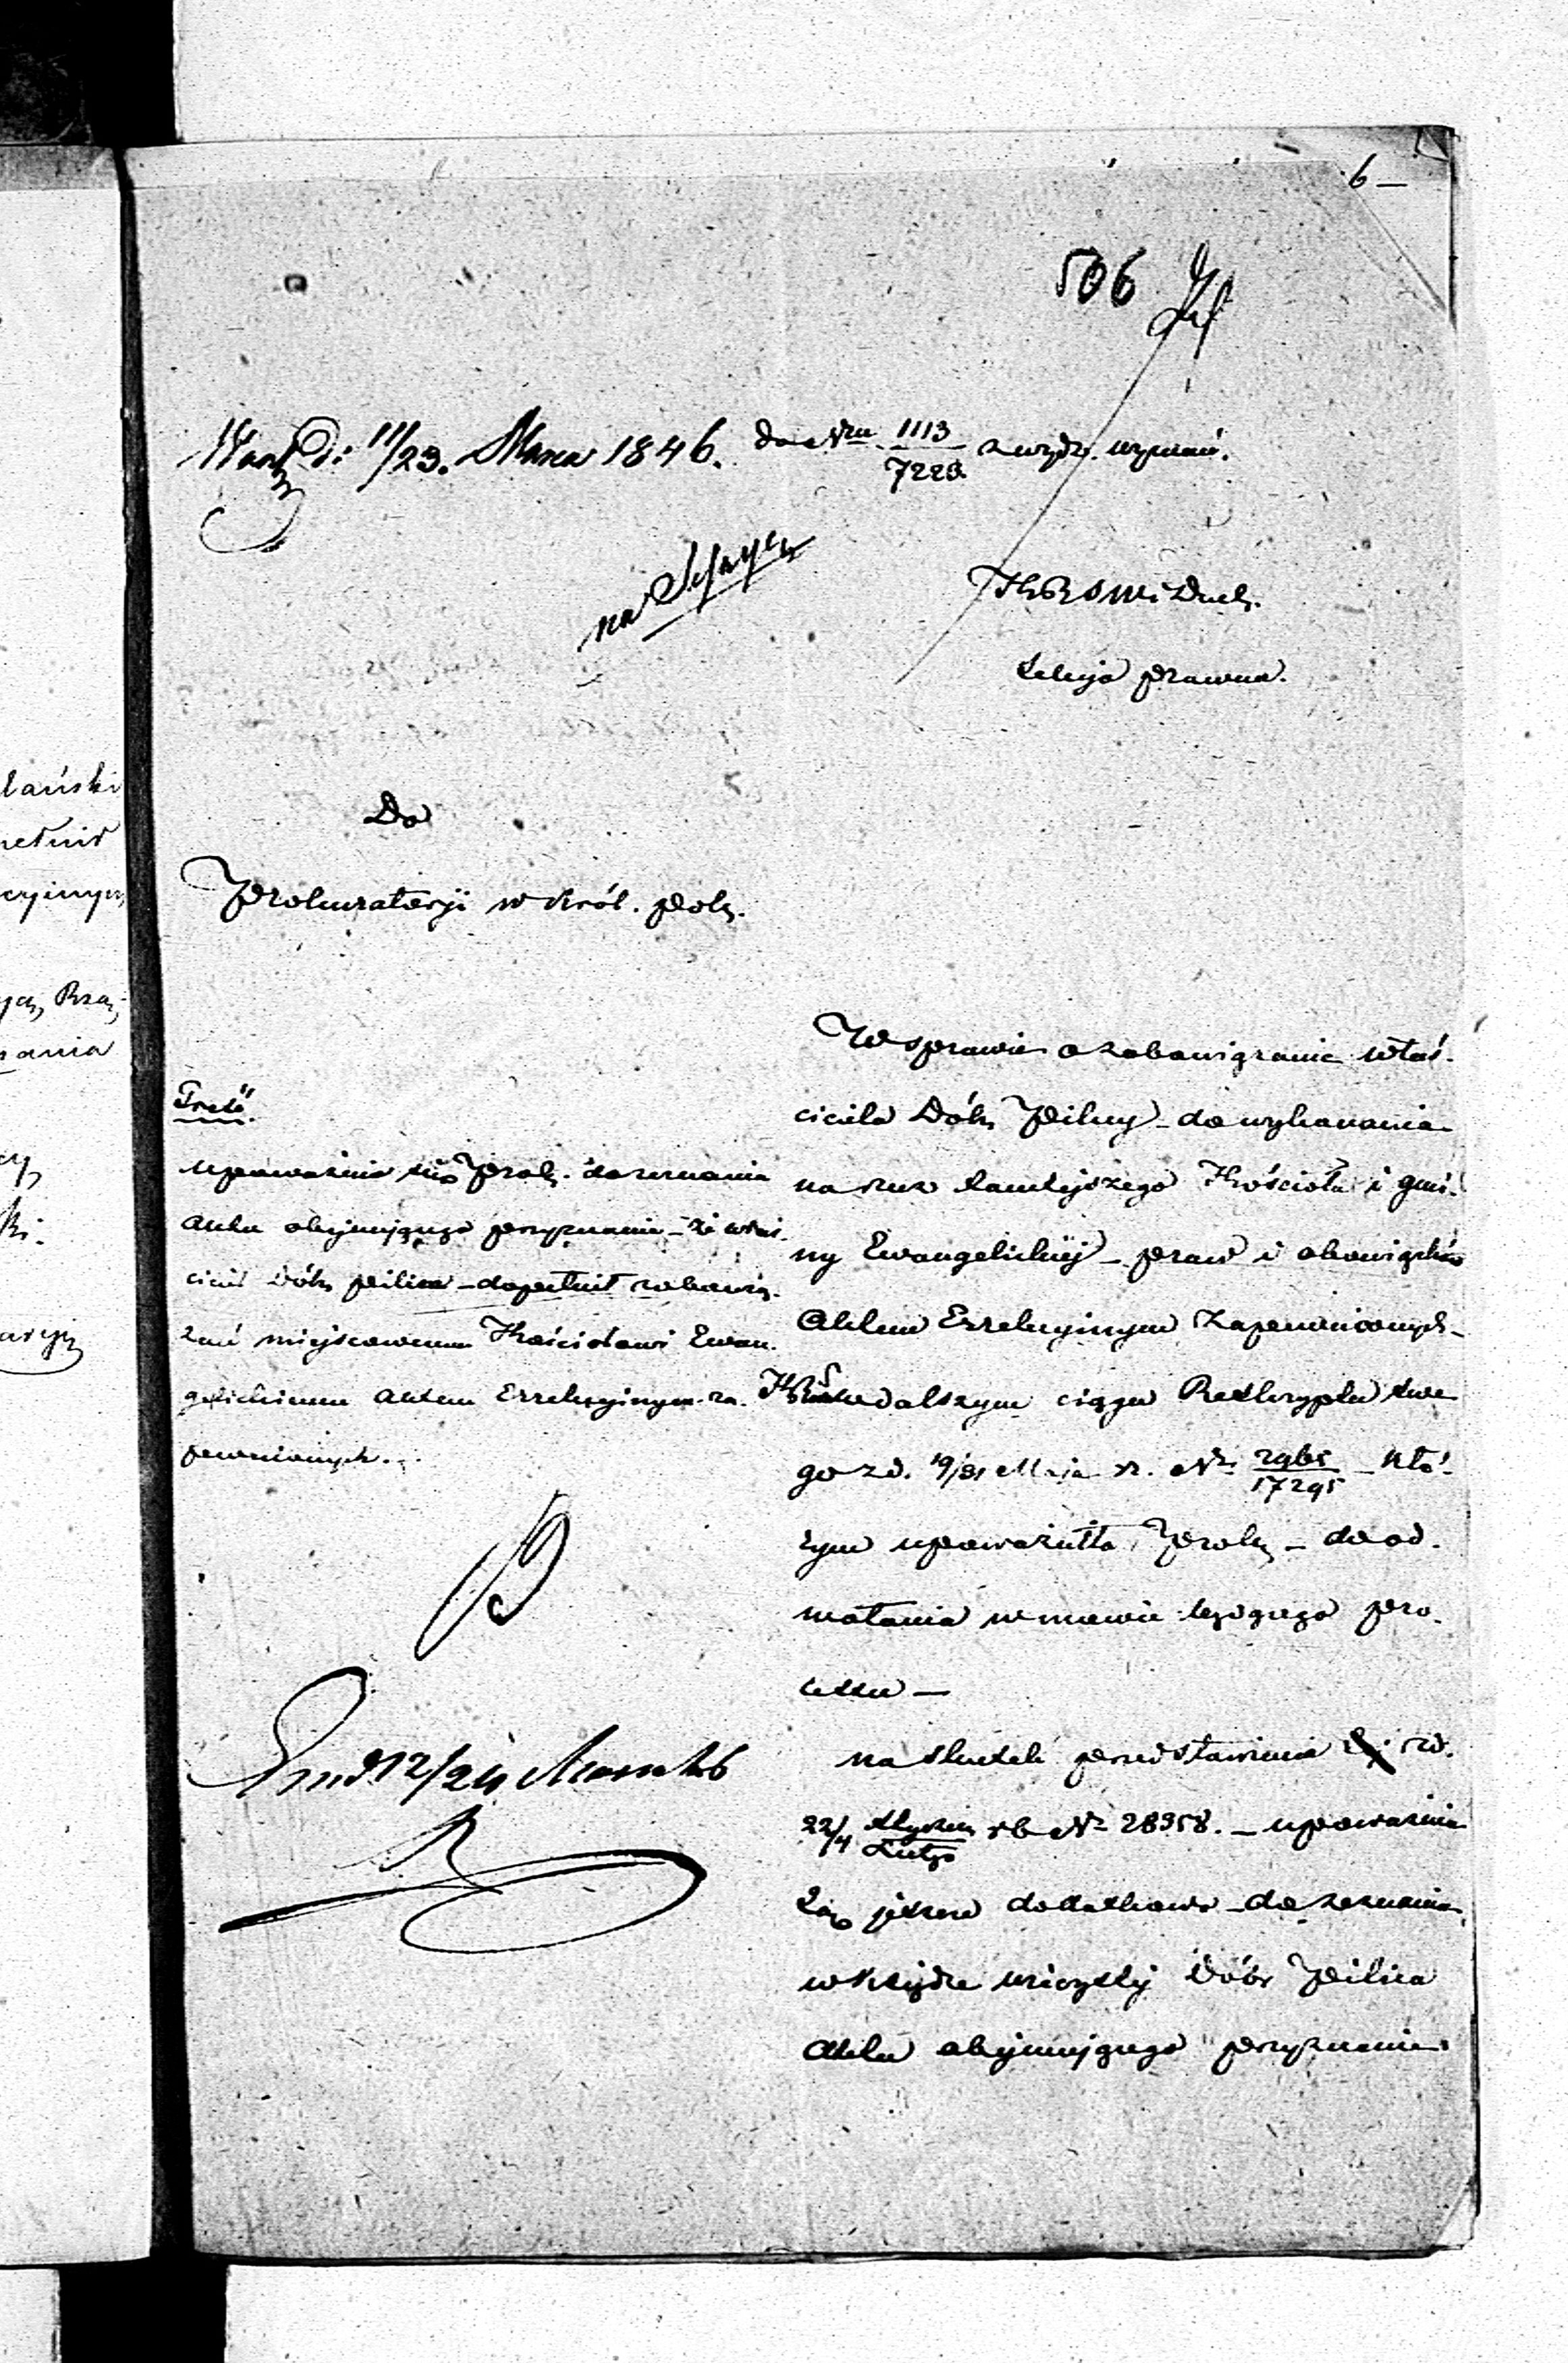 6
506
Warsz. D: 11/23. Marca 1846. do Nru 1113/7223 z wydz. wyznań.
KRSWiDuch.
Sekcja prawna.
Do
Prokuratoryi w Król. Pols.
Treść.
upoważnia się Prok. do zeznania
aktu obejmującego przyznanie – że właś.
ciciel Dóbr Pilica – dopełnił zobowią.
zań miejscowemu Kościołowi Ewan.
gelickiemu aktem Erekcyjnym za.
pewnionych.
W sprawie o zobowiązanie właś.
ciciela Dóbr Pilicy – do wykonania
na rzecz tamtejszego Kościoła i gmi.
ny Ewangelickiej – praw i obowiązków
Aktem Erekcyjnym Zapewnionych –
w dalszym ciągu Reskryptu swe
go z d. 19/31 Maja r. Nr 2965/17295 – któ.
rym upoważniła Prok. – do od.
wołania w mowie będącego pro.
cessu –
na skutek przedstawienia z d.
22/4 Stycznia/Lutego rb Nr 28358. – upoważnia
Ją jeszcze dodatkowo – do zeznania
w księdze wieczystej Dóbr Pilica
aktu obejmującego przyznanie
12/24 Marca 46
lański
cyjnym
Rzą